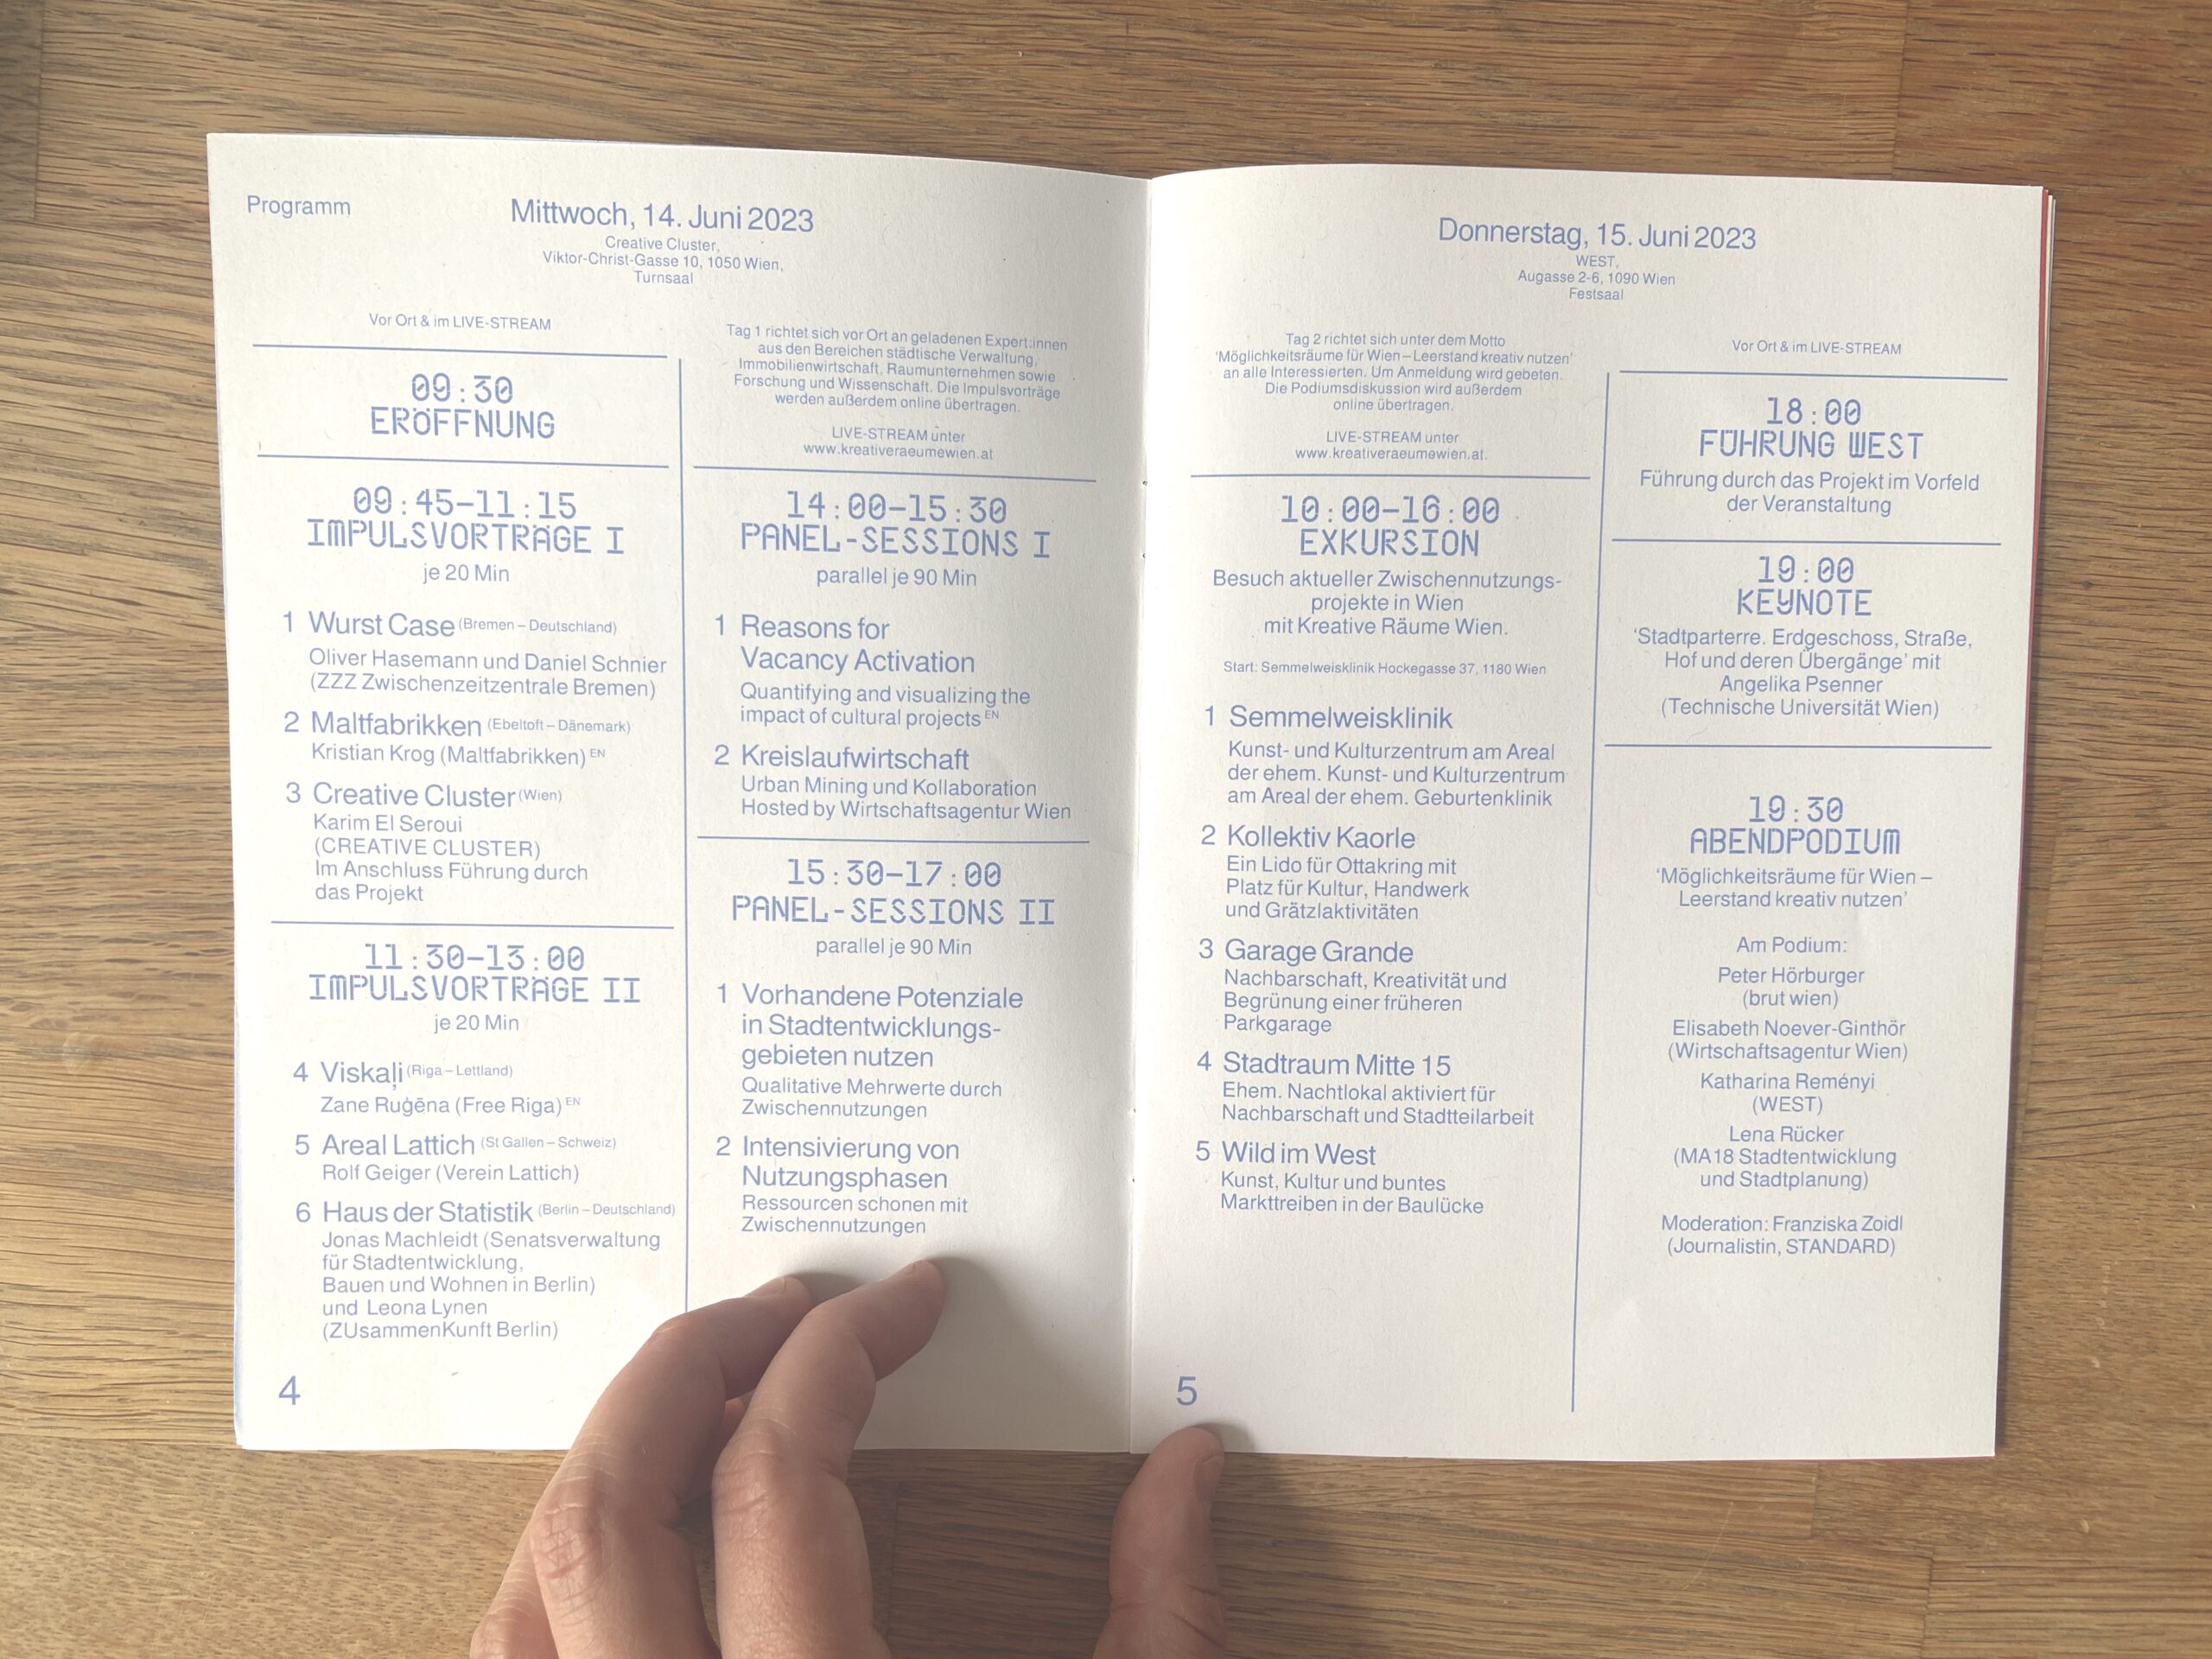 Programm
Mittwoch, 14. Juni 2023
Creative Cluster,
Viktor-Christ-Gasse 10, 1050 Wien,
Turnsaal
Vor Ort & im LIVE-STREAM
09:30
ERÖFFNUNG
09:45–11:15
IMPULSVORTRÄGE I
je 20 Min
1 Wurst Case (Bremen – Deutschland)
Oliver Hasemann und Daniel Schnier
(ZZZ Zwischenzeitzentrale Bremen)
2 Maltfabrikken (Ebeltoft – Dänemark)
Kristian Krog (Maltfabrikken) EN
3 Creative Cluster (Wien)
Karim El Seroui
(CREATIVE CLUSTER)
Im Anschluss Führung durch
das Projekt
11:30–13:00
IMPULSVORTRÄGE II
je 20 Min
4 Viskaļi (Riga – Lettland)
Zane Ruģēna (Free Riga) EN
5 Areal Lattich (St Gallen – Schweiz)
Rolf Geiger (Verein Lattich)
6 Haus der Statistik (Berlin – Deutschland)
Jonas Machleidt (Senatsverwaltung
für Stadtentwicklung,
Bauen und Wohnen in Berlin)
und Leona Lynen
(ZUsammenKunft Berlin)
4
Tag 1 richtet sich vor Ort an geladenen Expert:innen
aus den Bereichen städtische Verwaltung,
Immobilienwirtschaft, Raumunternehmen sowie
Forschung und Wissenschaft. Die Impulsvorträge
werden außerdem online übertragen.
LIVE-STREAM unter
www.kreativeraeumewien.at
14:00–15:30
PANEL-SESSIONS I
parallel je 90 Min
1 Reasons for
Vacancy Activation
Quantifying and visualizing the
impact of cultural projects EN
2 Kreislaufwirtschaft
Urban Mining und Kollaboration
Hosted by Wirtschaftsagentur Wien
15:30–17:00
PANEL-SESSIONS II
parallel je 90 Min
1 Vorhandene Potenziale
in Stadtentwicklungs-
gebieten nutzen
Qualitative Mehrwerte durch
Zwischennutzungen
2 Intensivierung von
Nutzungsphasen
Ressourcen schonen mit
Zwischennutzungen
Donnerstag, 15. Juni 2023
WEST,
Augasse 2-6, 1090 Wien
Festsaal
Tag 2 richtet sich unter dem Motto
'Möglichkeitsräume für Wien – Leerstand kreativ nutzen'
an alle Interessierten. Um Anmeldung wird gebeten.
Die Podiumsdiskussion wird außerdem
online übertragen.
LIVE-STREAM unter
www.kreativeraeumewien.at.
10:00–16:00
EXKURSION
Besuch aktueller Zwischennutzungs-
projekte in Wien
mit Kreative Räume Wien.
Start: Semmelweisklinik Hockegasse 37, 1180 Wien
1 Semmelweisklinik
Kunst- und Kulturzentrum am Areal
der ehem. Kunst- und Kulturzentrum
am Areal der ehem. Geburtenklinik
2 Kollektiv Kaorle
Ein Lido für Ottakring mit
Platz für Kultur, Handwerk
und Grätzlaktivitäten
3 Garage Grande
Nachbarschaft, Kreativität und
Begrünung einer früheren
Parkgarage
4 Stadtraum Mitte 15
Ehem. Nachtlokal aktiviert für
Nachbarschaft und Stadtteilarbeit
5 Wild im West
Kunst, Kultur und buntes
Markttreiben in der Baulücke
5
Vor Ort & im LIVE-STREAM
18:00
FÜHRUNG WEST
Führung durch das Projekt im Vorfeld
der Veranstaltung
19:00
KEYNOTE
'Stadtparterre. Erdgeschoss, Straße,
Hof und deren Übergänge' mit
Angelika Psenner
(Technische Universität Wien)
19:30
ABENDPODIUM
'Möglichkeitsräume für Wien –
Leerstand kreativ nutzen'
Am Podium:
Peter Hörburger
(brut wien)
Elisabeth Noever-Ginthör
(Wirtschaftsagentur Wien)
Katharina Reményi
(WEST)
Lena Rücker
(MA18 Stadtentwicklung
und Stadtplanung)
Moderation: Franziska Zoidl
(Journalistin, STANDARD)